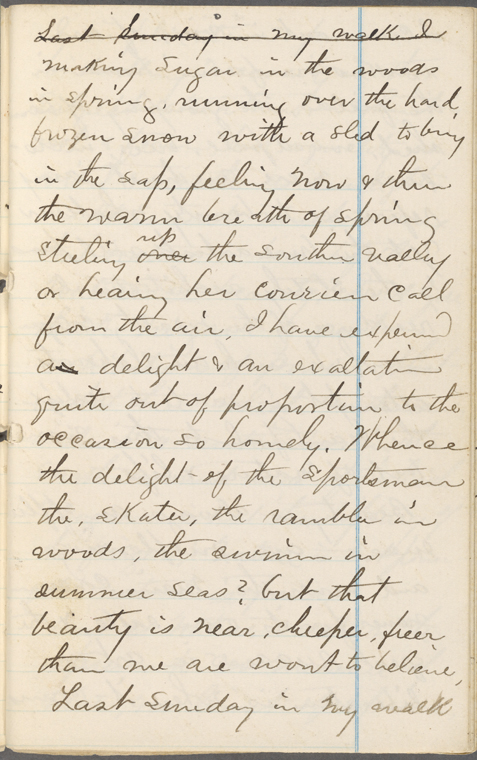 Last Sunday in my walk I
making sugar in the woods
in spring, running over the hard
frozen snow with a sled to bring
in the sap, feeling now & then
the warm breath of spring
stealing over up the southern valley
or hearing her courier call
from the air, I have experienced
an delight & an exaltation
quite out of proportion to the
occasion so homely. Whence
the delight of the sportsman
the, skater, the rambler in
woods, the swimmer in
summer seas? but that
beauty is near, cheeper, freer
than we are wont to believe,
Last Sunday in my walk